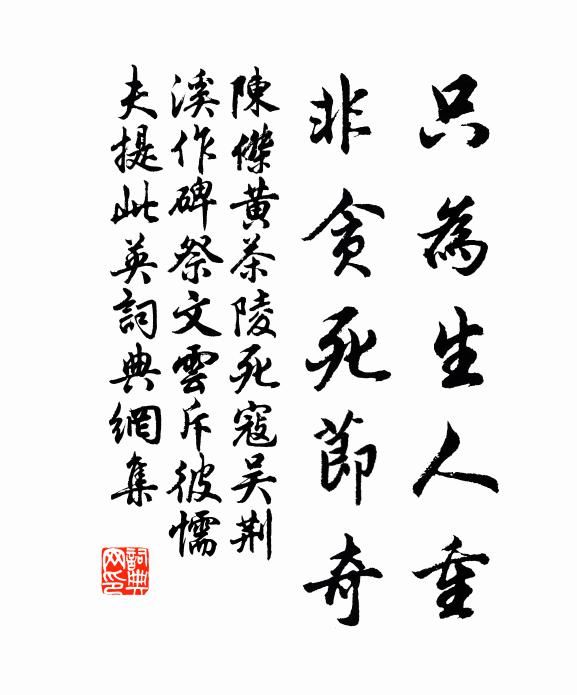 只為生人重
非貪死節奇
陳傑黃茶陵死寇吴荆
溪作碑祭文雲斥彼懦
夫提此英詞典網集
詞典網印